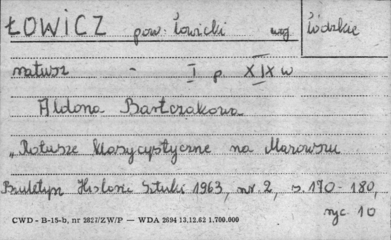 ŁOWICZ pow. Łowicki woj. Łódzkie
ratusz - I p. XIX w
Aldona Bartczakowa
„Ratusze klasycystyczne na Mazowszu
Biuletyn Historii Sztuki 1963, nr. 2, s. 170-180,
ryc. 10
CWD - B-15-b, nr 2827/ZW/P — WDA 2694 13.12.62 1.700.000